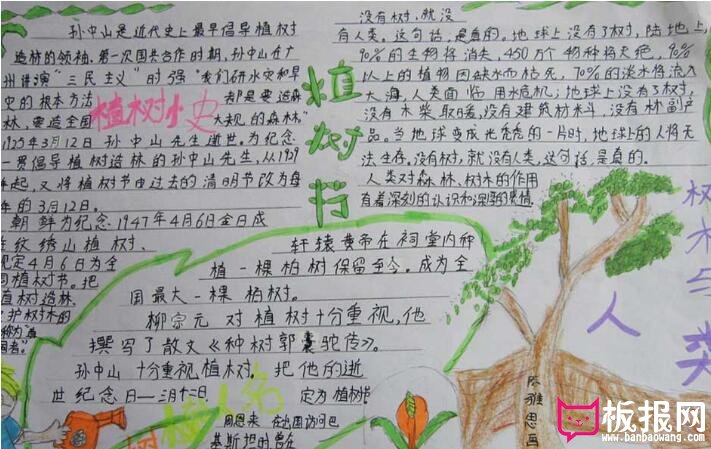 孙中山是近代史上最早倡导植树
造林的领袖.第一次国共合作时期,孙中山在广
州讲演"三民主义"时强"我们研水灾和旱
灾的根本方法 都是要造森
林,要造全国 大规的森林."
植树小史
1925年3月12日孙中山先生逝世.为纪念
一贯倡导植树造林的孙中山先生,从1929
年起,又将植树节由过去的清明节改为每
年的3月12日.
朝鲜为纪念1947年4月6日金日成
在纹绣山植树、
规定4月6日为全
国植树节。把
植树造林、
护树木的
植树行
没有树,就没
有人类。这句话,是真的。地球上没有了树,陆地上,
90%的生物将消失,450万个物种将灭绝,90%
以上的植物因缺水而枯死,70%的淡水将流入
大海,人类面临用水危机;地球上没有了树,
没有木柴取暖,没有建筑材料,没有林副产
品。当地球变成光秃秃的一片时,地球上的人将无
法生存,没有树,就没有人类,这句话,是真的.
人类对森林、树木的作用
有着深刻的认识和深厚的感情.
树木与人类
轩辕黄帝在祠堂内种
植一棵柏树保留至今。成为全
国最大一棵柏树.
柳宗元对植树十分重视,他
撰写了散文《种树郭橐驼传》。
孙中山十分重视植树.把他的逝
世纪念日一三月十二日 定为植树节
周恩来 在出国访问巴
基斯坦时曾在
板报网
www.banbaowang.com